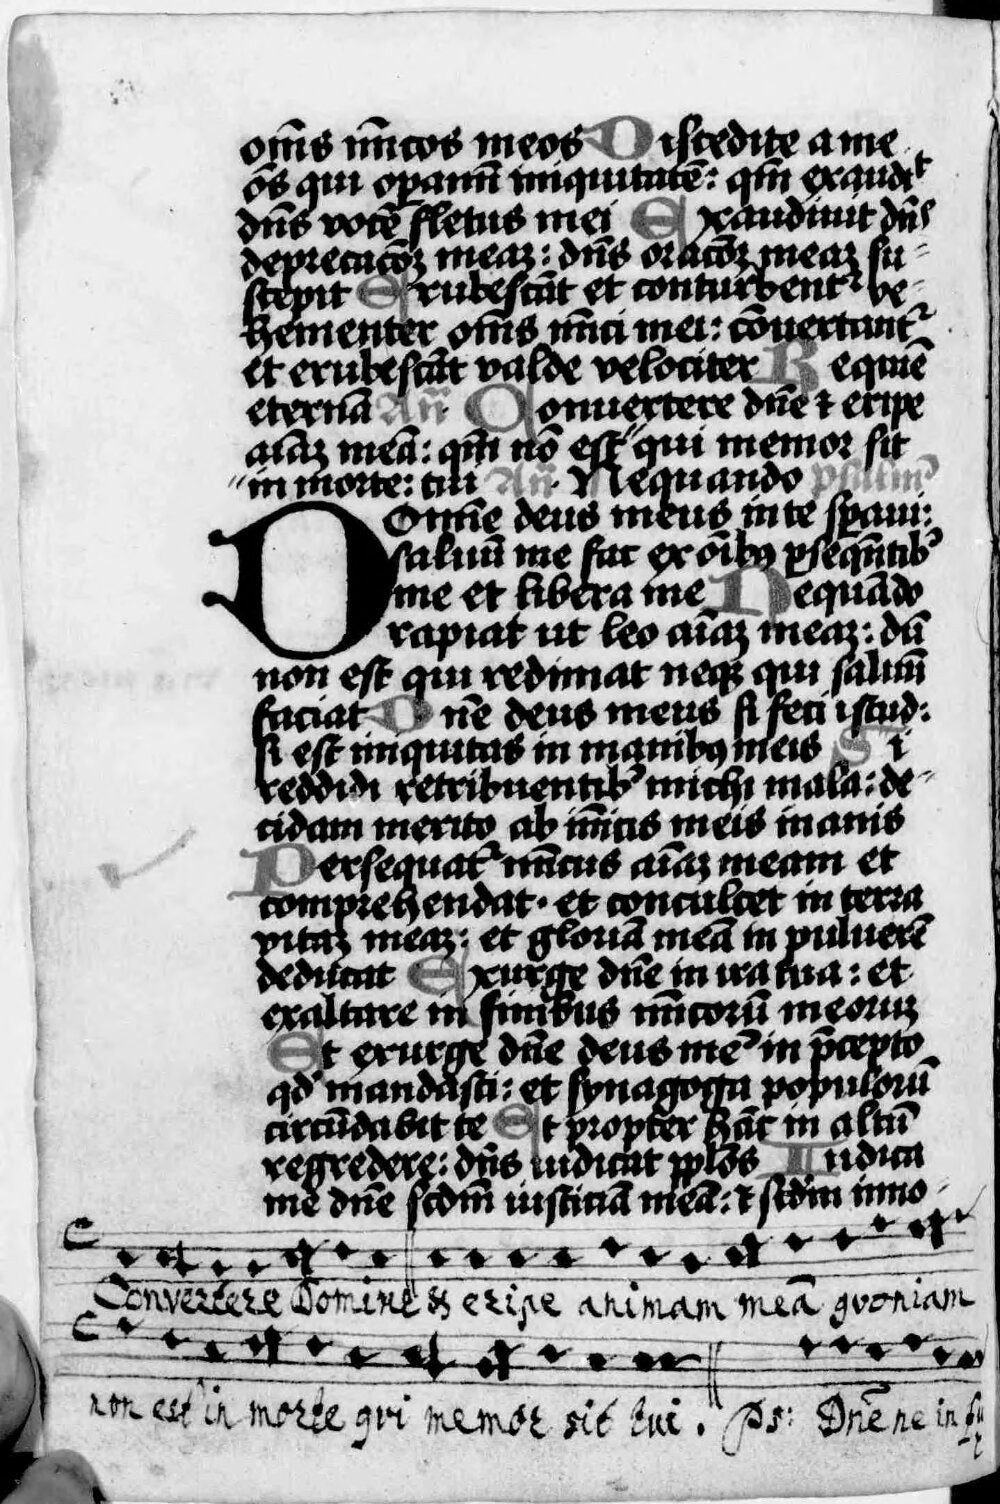 om̄s īmicos meos Discedite a me
ōs qui opamī iniquitatē: qm̄ exaudit
dn̄s vocē fletus mei Exaudiuit dn̄s
deprecacōꝫ meaꝫ: dn̄s oracōꝫ meaꝫ su-
scepit Erubescāt et conturbent᷑ ve-
hementer om̄s īmici mei: cōuertant᷑
et erubescāt valde velociter Requiē
eternā An̄ Conuertere dn̄e ⁊ eripe
aīaꝫ meā: qm̄ nō est qui memor sit
in morte: tui An̄ Nequando psalm᷒
Domīe deus meus in te spaui:
saluū me fac ex oībꝯ psequētibꝰ
me et libera me Nequādo
rapiat ut leo aīaꝫ meaꝫ: dū
non est qui redimat neqꝫ qui saluū
faciat Dn̄e deus meus si feci istud:
si est iniquitas in manibꝯ meis Si
reddidi retribuentibꝰ michi mala: de-
cidam merito ab īmicis meis inanis
Persequat᷑ īmicus aīaꝫ meam et
comprehendat· et conculcet in terra
vitaꝫ meaꝫ: et gloriā meā in puluerē
deducat Exurge dn̄e in ira tua: et
exaltare in finibus īmicorū meoruꝫ
Et exurge dn̄e deus meꝰ in p̄cepto
qd̓ mandasti: et synagoga populorū
circūdabit te Et propter hāc in altū
regredere: dn̄s iudicat pp̄los Iudica
me dn̄e scd̄m iusticiā meā: ⁊ scd̄m inno-
Convertere Domine & eripe animam meā quoniam
non est in morte qui memor sit tui. Ps: Dn̄e ne in fu